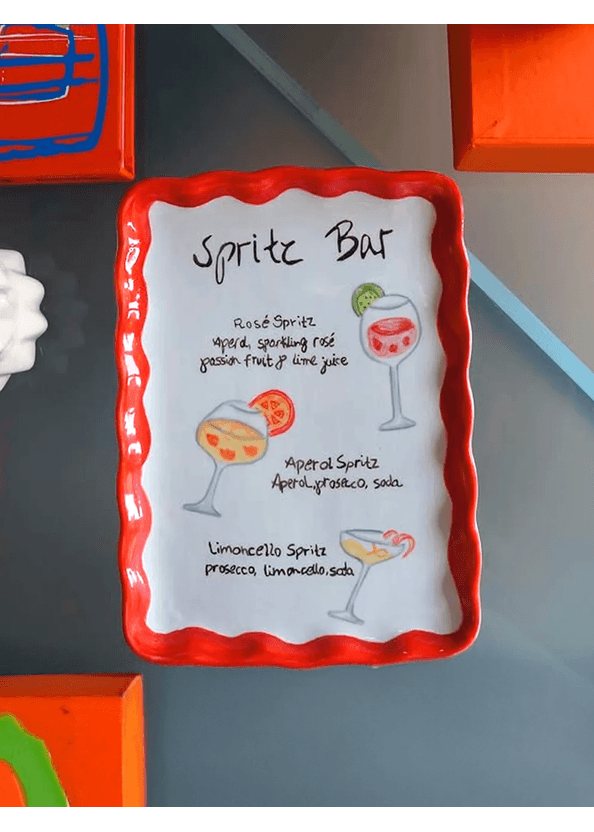 Spritz Bar
Rosé Spritz
Aperol, sparkling rosé
passion fruit & lime juice
Aperol Spritz
Aperol, prosecco, soda
Limoncello Spritz
prosecco, limoncello, soda